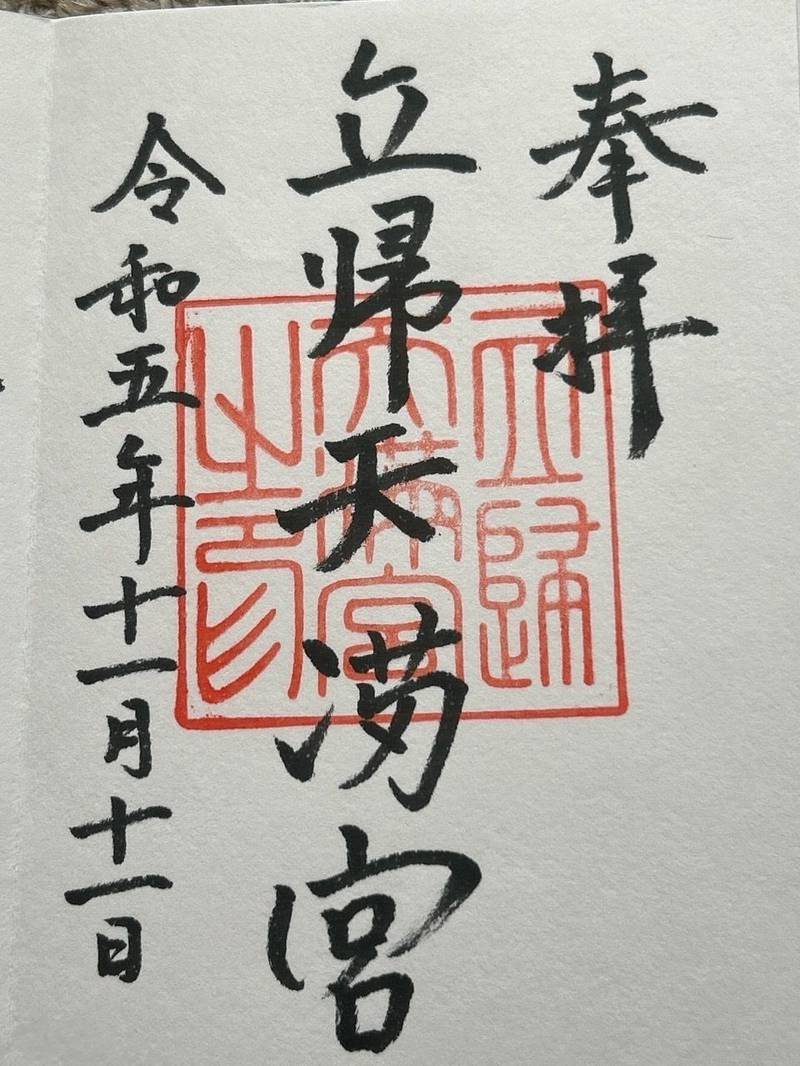 奉拝
立帰天満宮
立歸天満宮之印
令和五年十一月十一日